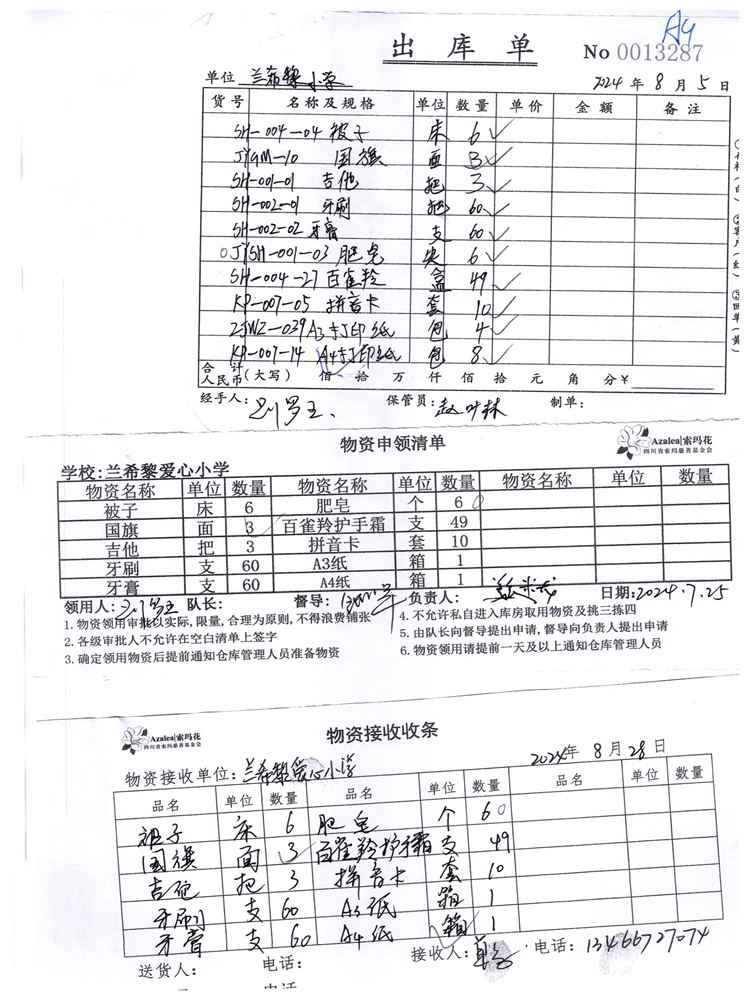 A4
出库单 No 0013287
单位 兰希黎小学 2024 年 8 月 5 日
货号 名称及规格 单位 数量 单价 金额 备注
SH-004-04 被子 床 6
JYGM-10 国旗 面 3
SH-001-01 吉他 把 3
SH-002-01 牙刷 把 60
SH-002-02 牙膏 支 60
JYSH-001-03 肥皂 块 6
SH-004-27 百雀羚 盒 49
KP-007-05 拼音卡 套 10
ZJWZ-039 A3打印纸 包 4
KP-007-14 A4打印纸 包 8
合计人民币(大写) 佰 拾 万 仟 佰 拾 元 角 分 ¥
经手人: 保管员: 赵叶林 制单:
物资申领清单 Azalea|索玛花
四川省索玛慈善基金会
学校:兰希黎爱心小学
物资名称 单位 数量 物资名称 单位 数量 物资名称 单位 数量
被子 床 6 肥皂 个 60
国旗 面 3 百雀羚护手霜 支 49
吉他 把 3 拼音卡 套 10
牙刷 支 60 A3纸 箱 1
牙膏 支 60 A4纸 箱 1
领用人: 队长: 督导: 负责人: 日期:2024.7.25
1.物资领用审批以实际,限量,合理为原则,不得浪费铺张
2.各级审批人不允许在空白清单上签字
3.确定领用物资后提前通知仓库管理人员准备物资
4.不允许私自进入库房取用物资及挑三拣四
5.由队长向督导提出申请,督导向负责人提出申请
6.物资领用请提前一天及以上通知仓库管理人员
Azalea|索玛花
四川省索玛慈善基金会
物资接收收条
2024年 8 月 28 日
物资接收单位:兰希黎爱心小学
品名 单位 数量 品名 单位 数量 品名 单位 数量
被子 床 6 肥皂 个 60
国旗 面 3 百雀羚护手霜 支 49
吉他 把 3 拼音卡 套 10
牙刷 支 60 A3纸 箱 1
牙膏 支 60 A4纸 箱 1
送货人: 电话: 接收人: 电话: 13466727074